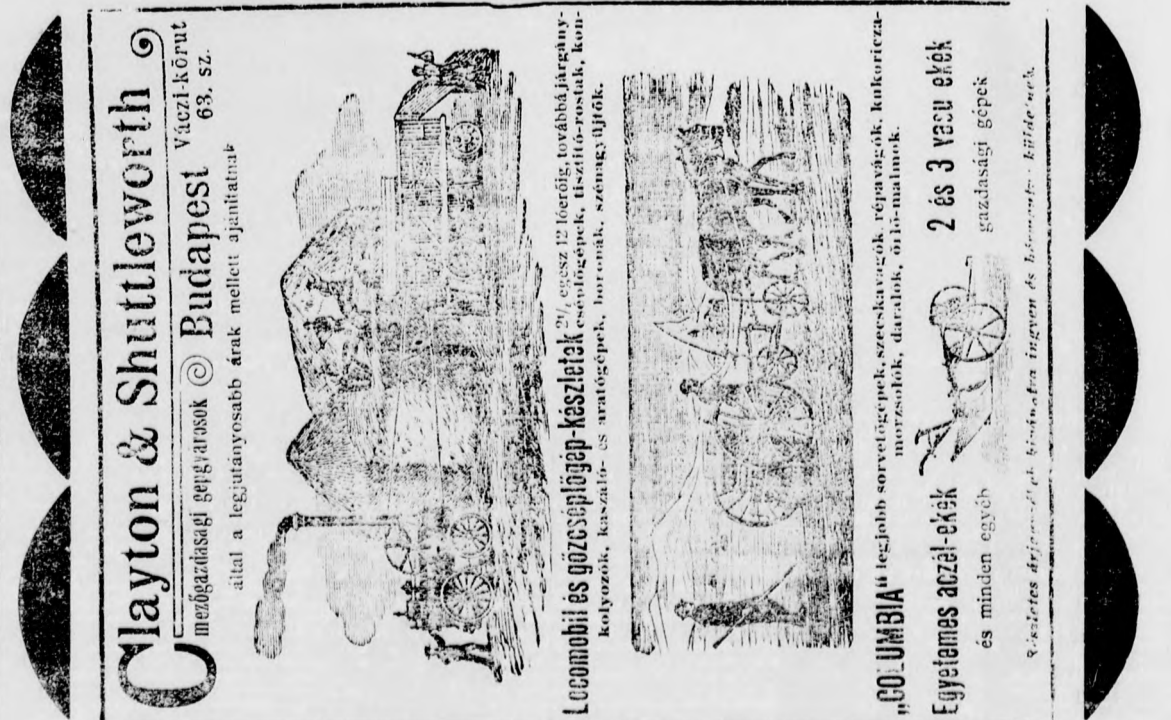 Clayton & Shuttleworth
mezőgazdasagi gepgyarosok Budapest Váczi-körut
63. sz.
által a legjutányosabb árak mellett ajánltatnak
Locomobil és gőzcséplőgép-készletek 2½ egész 12 lóerőig, továbbá járgány-
cséplőgépek, tisztitó-rosták, kon-
kolyozók, kaszáló- és aratógépek, boronák, szénagyüjtők.
„COLUMBIA” legjobb sorvetőgépek, szecskavágók, répavágók, kukoricza-
morzsolók, darálók, őrlő-malmok.
Egyetemes aczél-ekék
2 és 3 vasu ekék
és minden egyéb
gazdasági gépek
Részletes ingyen és küldetnek.